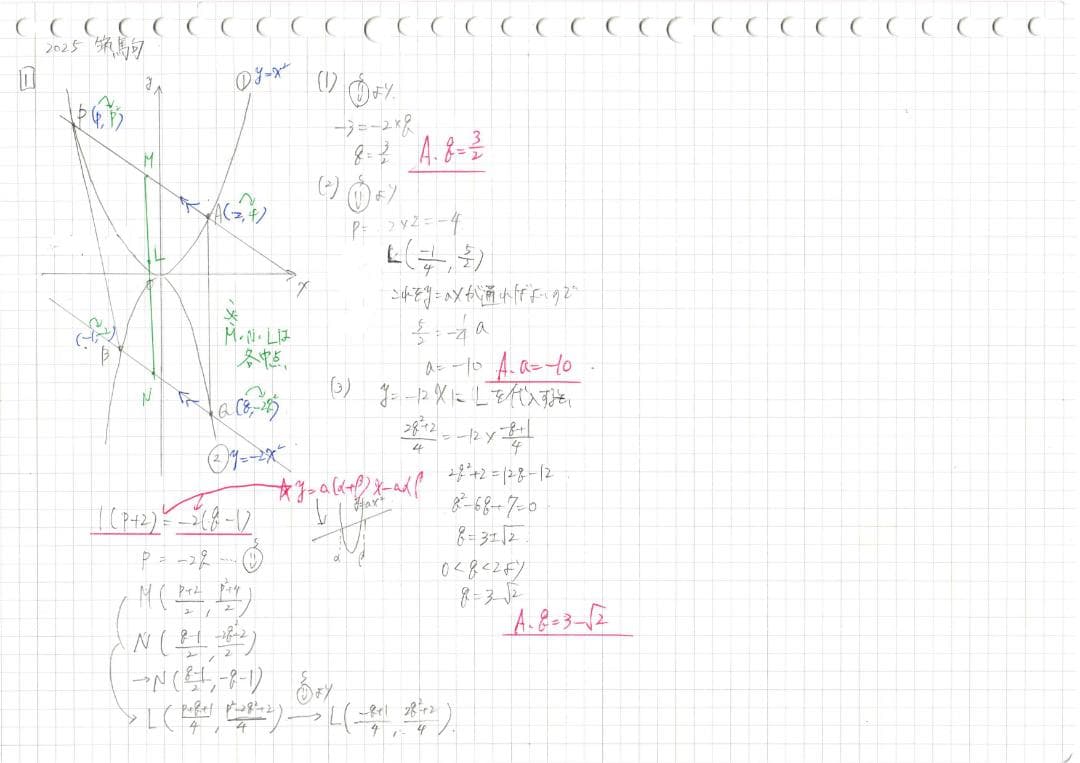 2025
1
① y=x²
y
P(p, p²)
M
A(2, 4)
L
x
(-1, -2)
B
※
M・N・Lは
各中点
N
Q(q, -2q²)
② y=-2x²
☆ y=a(α+β)x-aαβ
y=ax²
α β
1(p+2)=-2(q-1)
p=-2q …
M(p+2/2, p²+4/2)
N(q-1/2, -2q²-2/2)
→N(q-1/2, -q²-1)
L(p+q+1/4, p²-2q²+2/4) → L(-q+1/4, 2q²+2/4)
より
(1) より
-3=-2×q
q=3/2
A. q=3/2
(2) より
p= -2×2=-4
L(-1/4, 5/2)
これをy=axが通ればよいので
5/2=-1/4 a
a=-10
A. a=-10
(3) y=-12xにLを代入すると、
2q²+2/4=-12×-q+1/4
2q²+2=12q-12
q²-6q+7=0
q=3±√2
0<q<2より
q=3-√2
A. q=3-√2